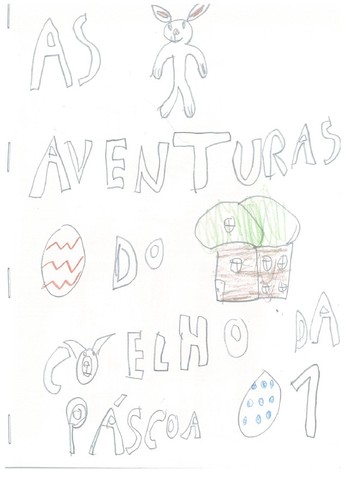 AS
AVENTURAS
DO
COELHO DA
PÁSCOA 1